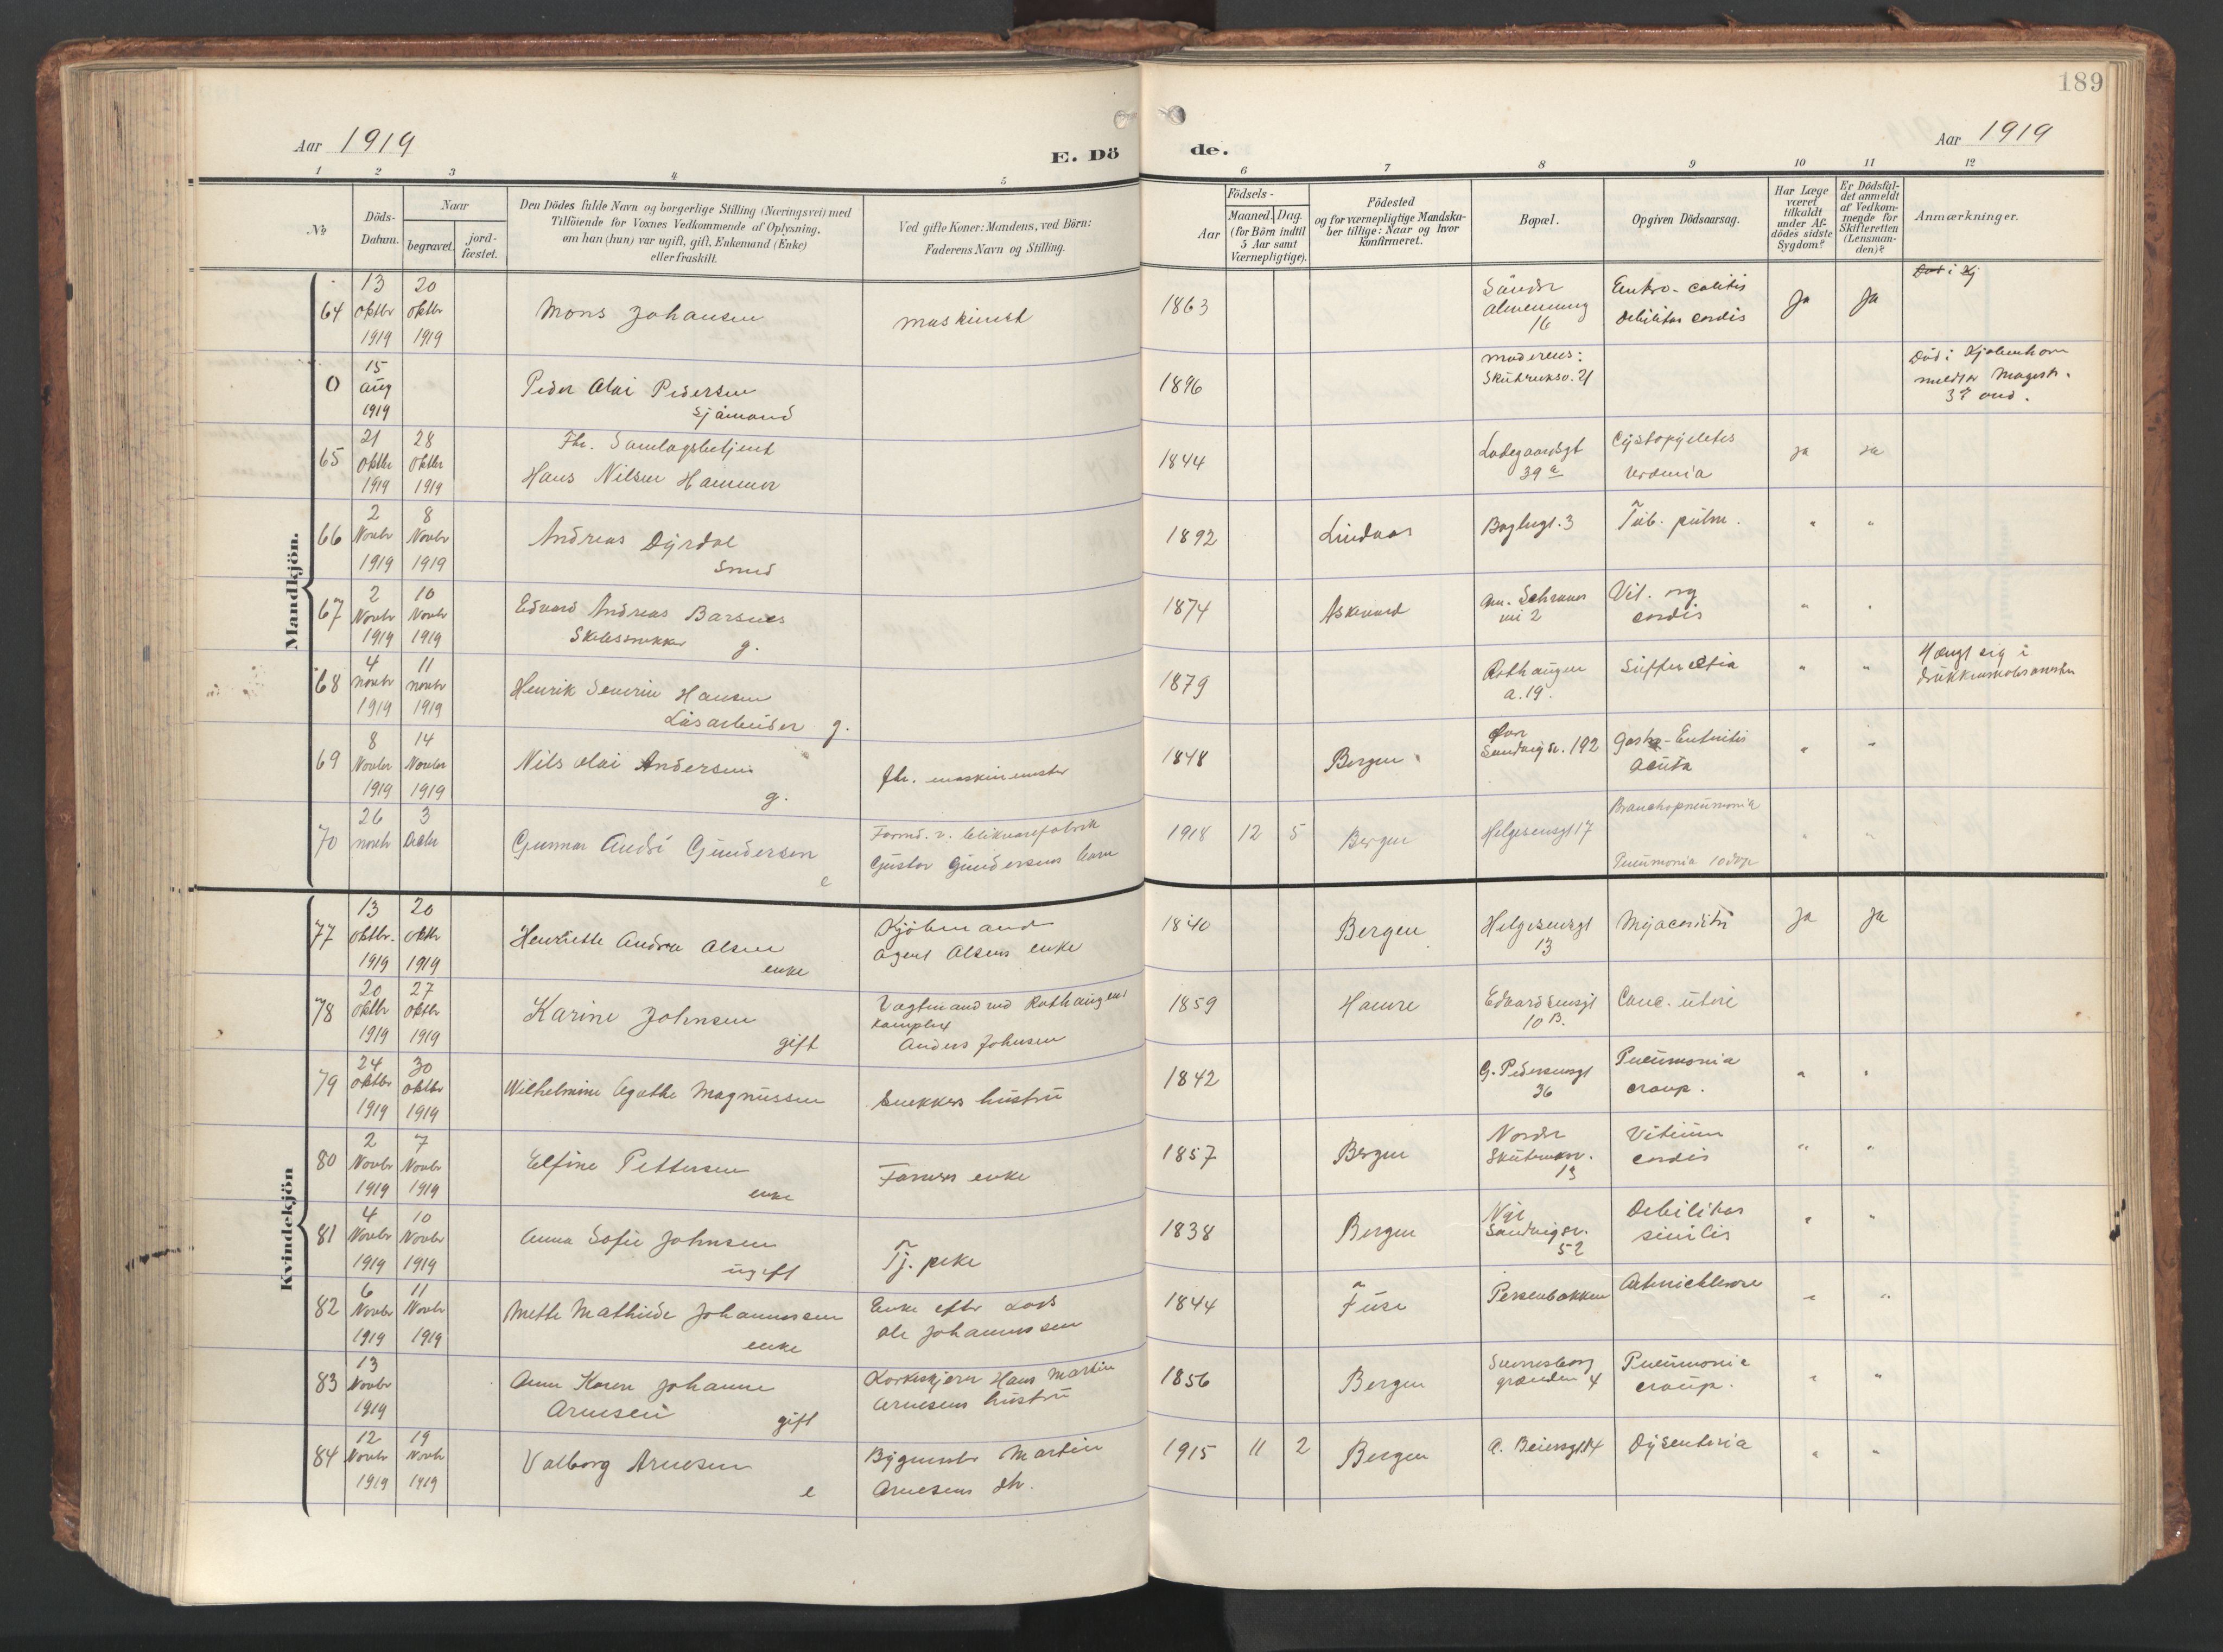 189
Aar 1919
E. Dö
de.
Aar 1919
1 2 3 4 5 6 7 8 9 10 11 12
№
Döds-
Datum.
Naar
begravet.
jord-
fæstet.
Den Dödes fulde Navn og borgerlige Stilling (Næringsvei) med
Tilföiende for Voxnes Vedkommende af Oplysning,
om han (hun) var ugift, gift, Enkemand (Enke)
eller fraskilt.
Ved gifte Koner: Mandens, ved Börn:
Faderens Navn og Stilling.
Födsels-
Aar
Maaned. Dag.
(for Börn indtil
5 Aar samt
Værnepligtige).
Födested
og for værnepligtige Mandska-
ber tillige: Naar og hvor
konfirmeret.
Bopæl.
Opgiven Dödsaarsag.
Har Læge
været
tilkaldt
under Af-
dödes sidste
Sygdom?
Er Dödsfal-
det anmeldt
af Vedkom-
mende for
Skifteretten
(Lensman-
den)?
Anmærkninger.
Mandkjön.
64
13 oktbr 1919
20 oktbr 1919
Mons Johansen
maskinist
1863
Söndre
almenning
16
Entro-colitis
Debilitas cordis
Ja
Ja
0
15 aug 1919
Peder Olai Pedersen
Sjömand
1896
moderens:
Skuteviksv. 21
Död i Kjøbenhavn
65
21 oktbr 1919
28 oktbr 1919
Fhv. Samlagsbetjent
Hans Nilsen Hammer
1844
Ladegaardsgt
39 a
Cystopyelitis
Uræmia
ja
ja
66
2 Novbr 1919
8 Novbr 1919
Andreas Dyrdal
Smed
1892
Lindaas
Baglergt. 3
Tub. pulm.
"
"
67
2 Novbr 1919
10 Novbr 1919
Edvard Andreas Barsnes
Skibssnekker g.
1874
Askevold
2
Vit. org
cordis
"
"
68
4 novbr 1919
11 novbr 1919
Henrik Severin Hansen
Løsarbeider g.
1879
Rothaugen
a. 19.
"
"
Hængt sig i
69
8 Novbr 1919
14 Novbr 1919
Nils Olai Andersen
g.
fhv. maskinmester
1848
Bergen
Sandvigsv. 192
Gastro-Enteritis
Acuta
"
"
70
26 novbr
3 Decbr
Gunnar André Gundersen
e
Formd. v. blikvarefabrik
Gustav Gundersens barn
1918 12 5
Bergen
Helgesensgt 17
Bronchopneumonia
Pneumonia
"
"
Kvindekjön
77
13 oktbr. 1919
20 oktbr 1919
Henriette Andrea Olsen
enke
Kjöbmand
agent Olsens enke
1840
Bergen
Helgesensgt
13
Myocarditis
Ja
Ja
78
20 oktbr 1919
27 oktbr 1919
Karine Johnsen
gift
Vagtmand ved Rothaugens
Kompleks
Anders Johnsen
1859
Hamre
Edvardsensgt
10 B.
Canc. uteri
79
24 oktbr 1919
30 oktbr 1919
Wilhelmine Agathe Magnussen
Snekkers hustru
1842
G. Pedersensgt
36
Pneumonia
croup.
"
"
80
2 Novbr 1919
7 Novbr 1919
Elfine Pettersen
enke
Formers enke
1857
Bergen
Nordre
Skuteviksv.
13
Vitium
cordis
"
"
81
4 Novbr 1919
10 Novbr 1919
Anna Sofie Johnsen
ugift
Tj. pike
1838
Bergen
Nye
Sandvigsv.
52
Debilitas
senilis
"
"
82
6 Novbr 1919
11 Novbr 1919
Mette Mathilde Johannessen
enke
Enke efter Lods
Ole Johannessen
1844
Fuse
Persenbakken
"
"
83
13 Novbr 1919
Anne Karen Johanne
Arnesen gift
Hans Martin
Arnesens hustru
1856
Bergen
4
Pneumonia
croup.
"
"
84
12 Novbr 1919
19 Novbr 1919
Valborg Arnesen
e
Bygmester Martin
Arnesens dtr.
1915 11 2
Bergen
Dysenteria
"
"